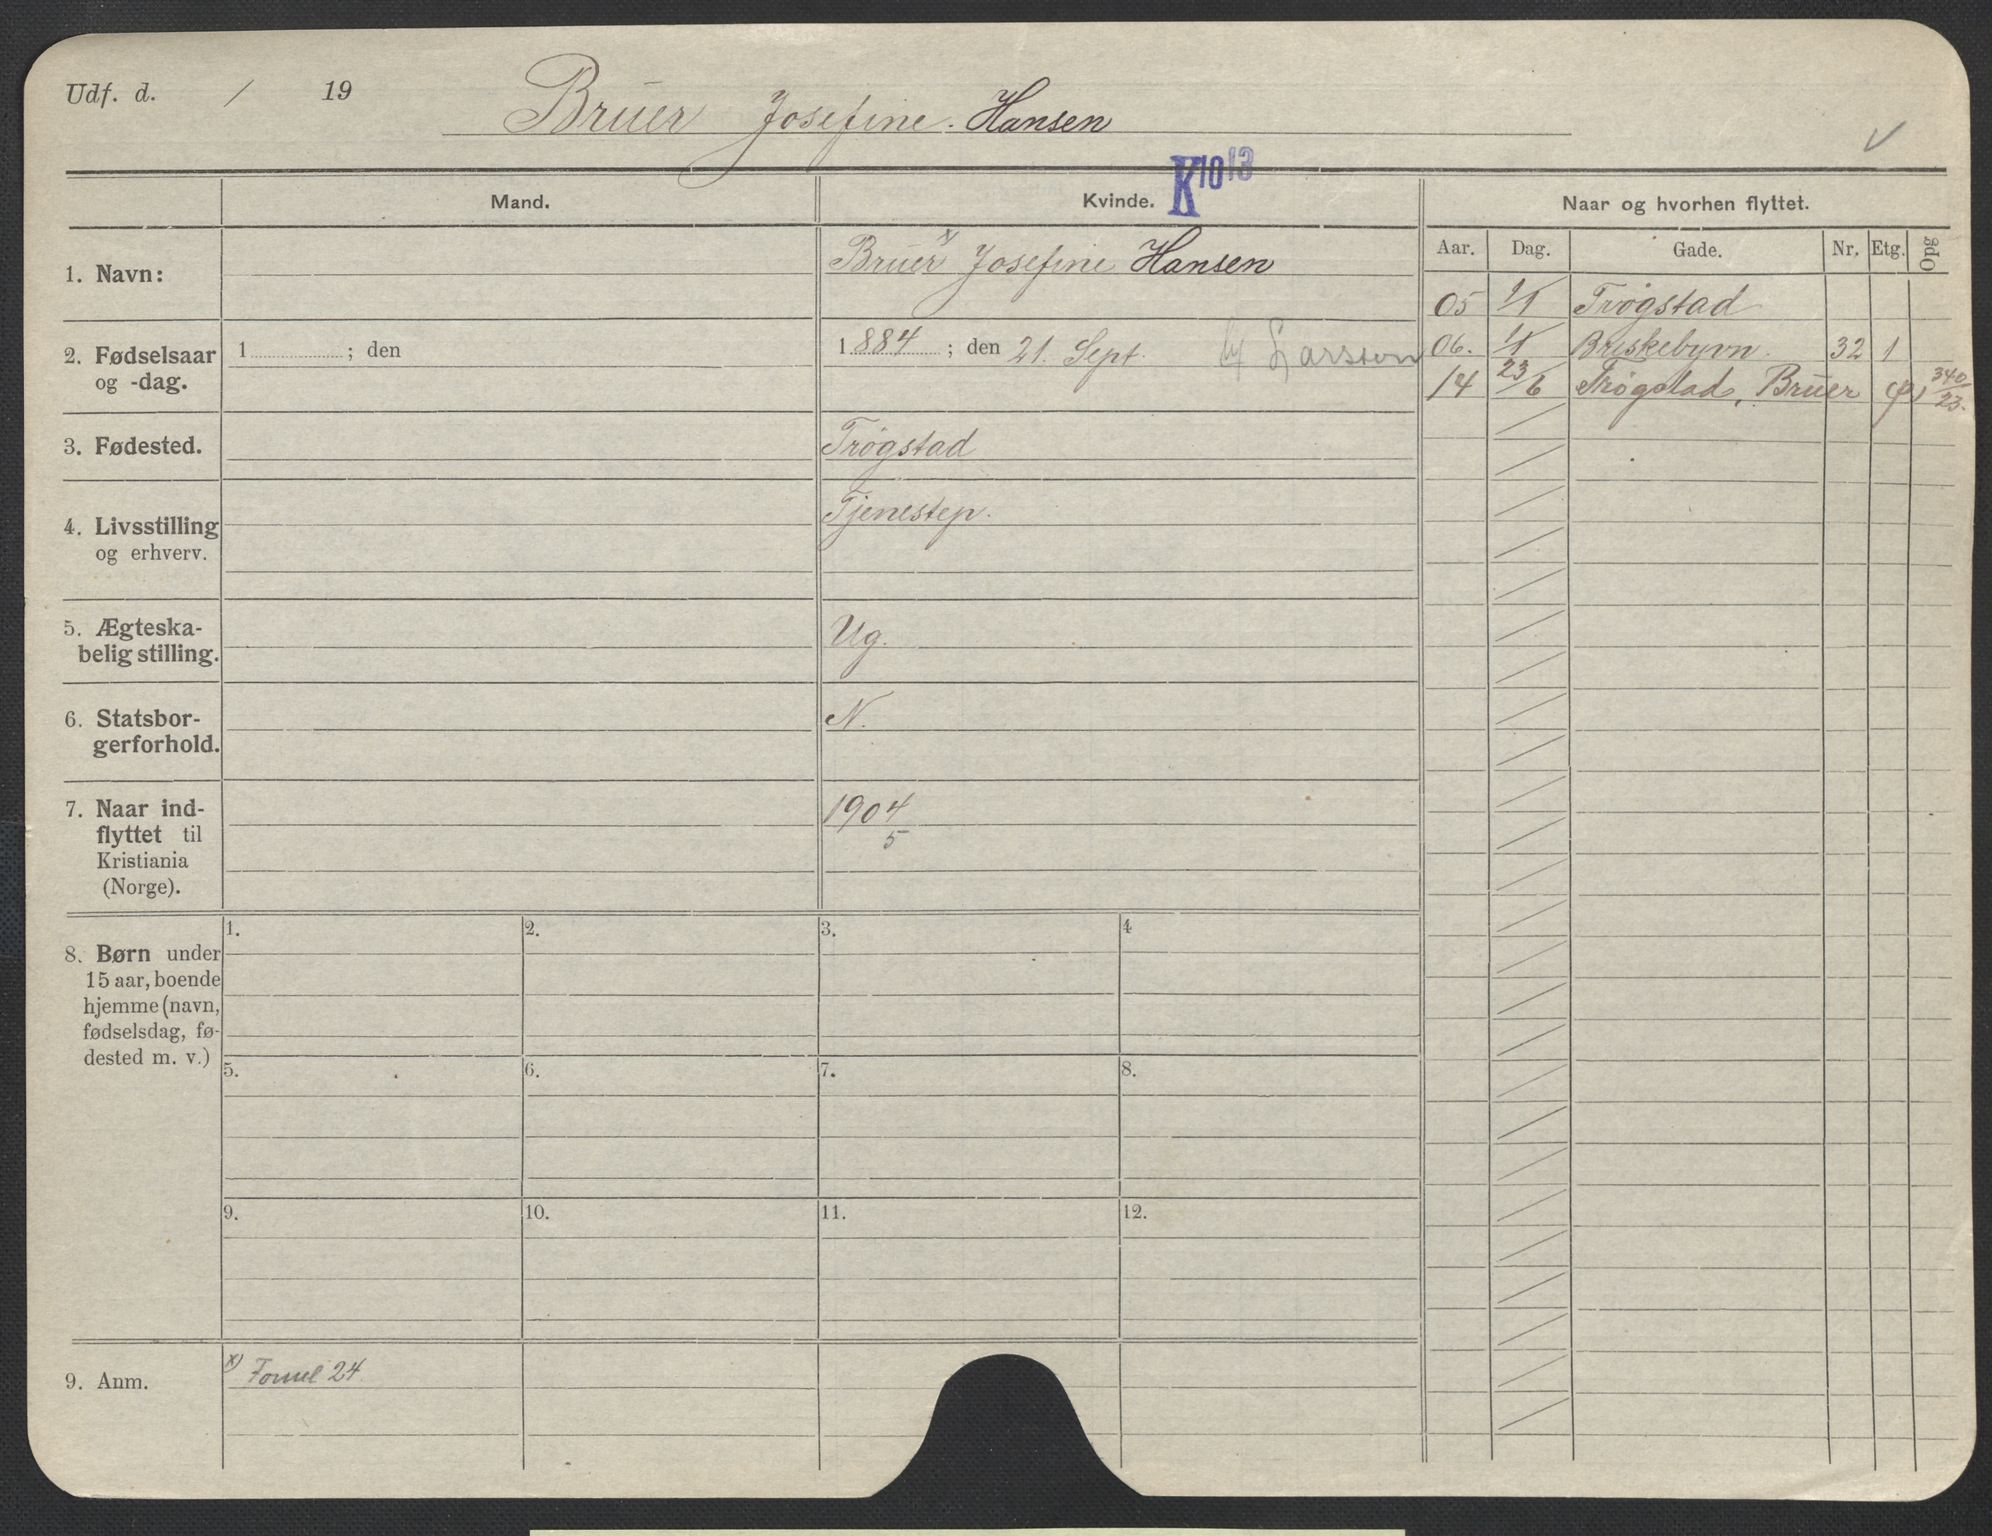 Udf. d. / 19
Bruer Josefine. Hansen
K 10 13
Mand.
Kvinde.
Naar og hvorhen flyttet.
Aar. Dag. Gade. Nr. Etg. Opg
1. Navn:
Bruer x) Josefine Hansen
05 1/1 Trøgstad
2. Fødselsaar
og -dag.
1 ; den
1884 ; den 21. Sept.
Larsson
06. 1/1 Briskebyvn. 32 1
14 23/6 Trøgstad, Bruer 340/23.
3. Fødested.
Trøgstad
4. Livsstilling
og erhverv.
Tjenestep.
5. Ægteska-
belig stilling.
Ug.
6. Statsbor-
gerforhold.
N.
7. Naar ind-
flyttet til
Kristiania
(Norge).
1904
5
8. Børn under
15 aar, boende
hjemme (navn,
fødselsdag, fø-
dested m. v.)
1. 2. 3. 4
5. 6. 7. 8.
9. 10. 11. 12.
9. Anm.
x) 24.